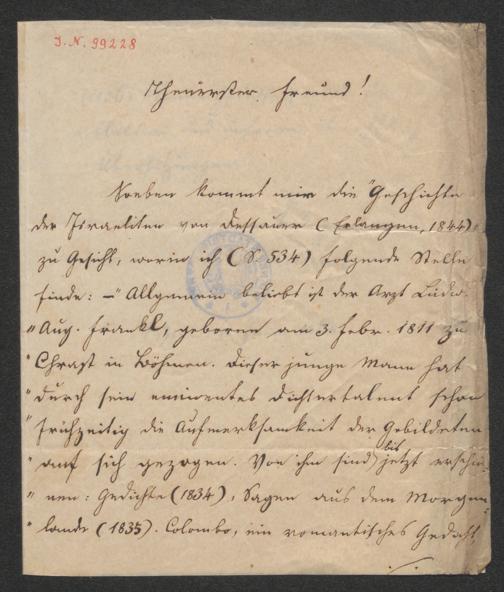 I. N. 99228
Theuerster Freund!
Soeben kommt mir die "Geschichte
der Israeliten von Dessauer (Erlangen, 1844)"
zu Gesicht, worin ich (S. 534) folgende Stelle
finde: — "Allgemein beliebt ist der Arzt Ludw.
" Aug. Frankl, geboren am 3. Febr. 1811 zu
" Chrast in Böhmen. Dieser junge Mann hat
" durch sein eminentes Dichtertalent schon
" frühzeitig die Aufmerksamkeit der Gebildeten
" auf sich gezogen. Von ihm sind bis jetzt erschie-
" nen: Gedichte (1834), Sagen aus dem Morgen-
" lande (1835). Colombo, ein romantisches Gedicht,